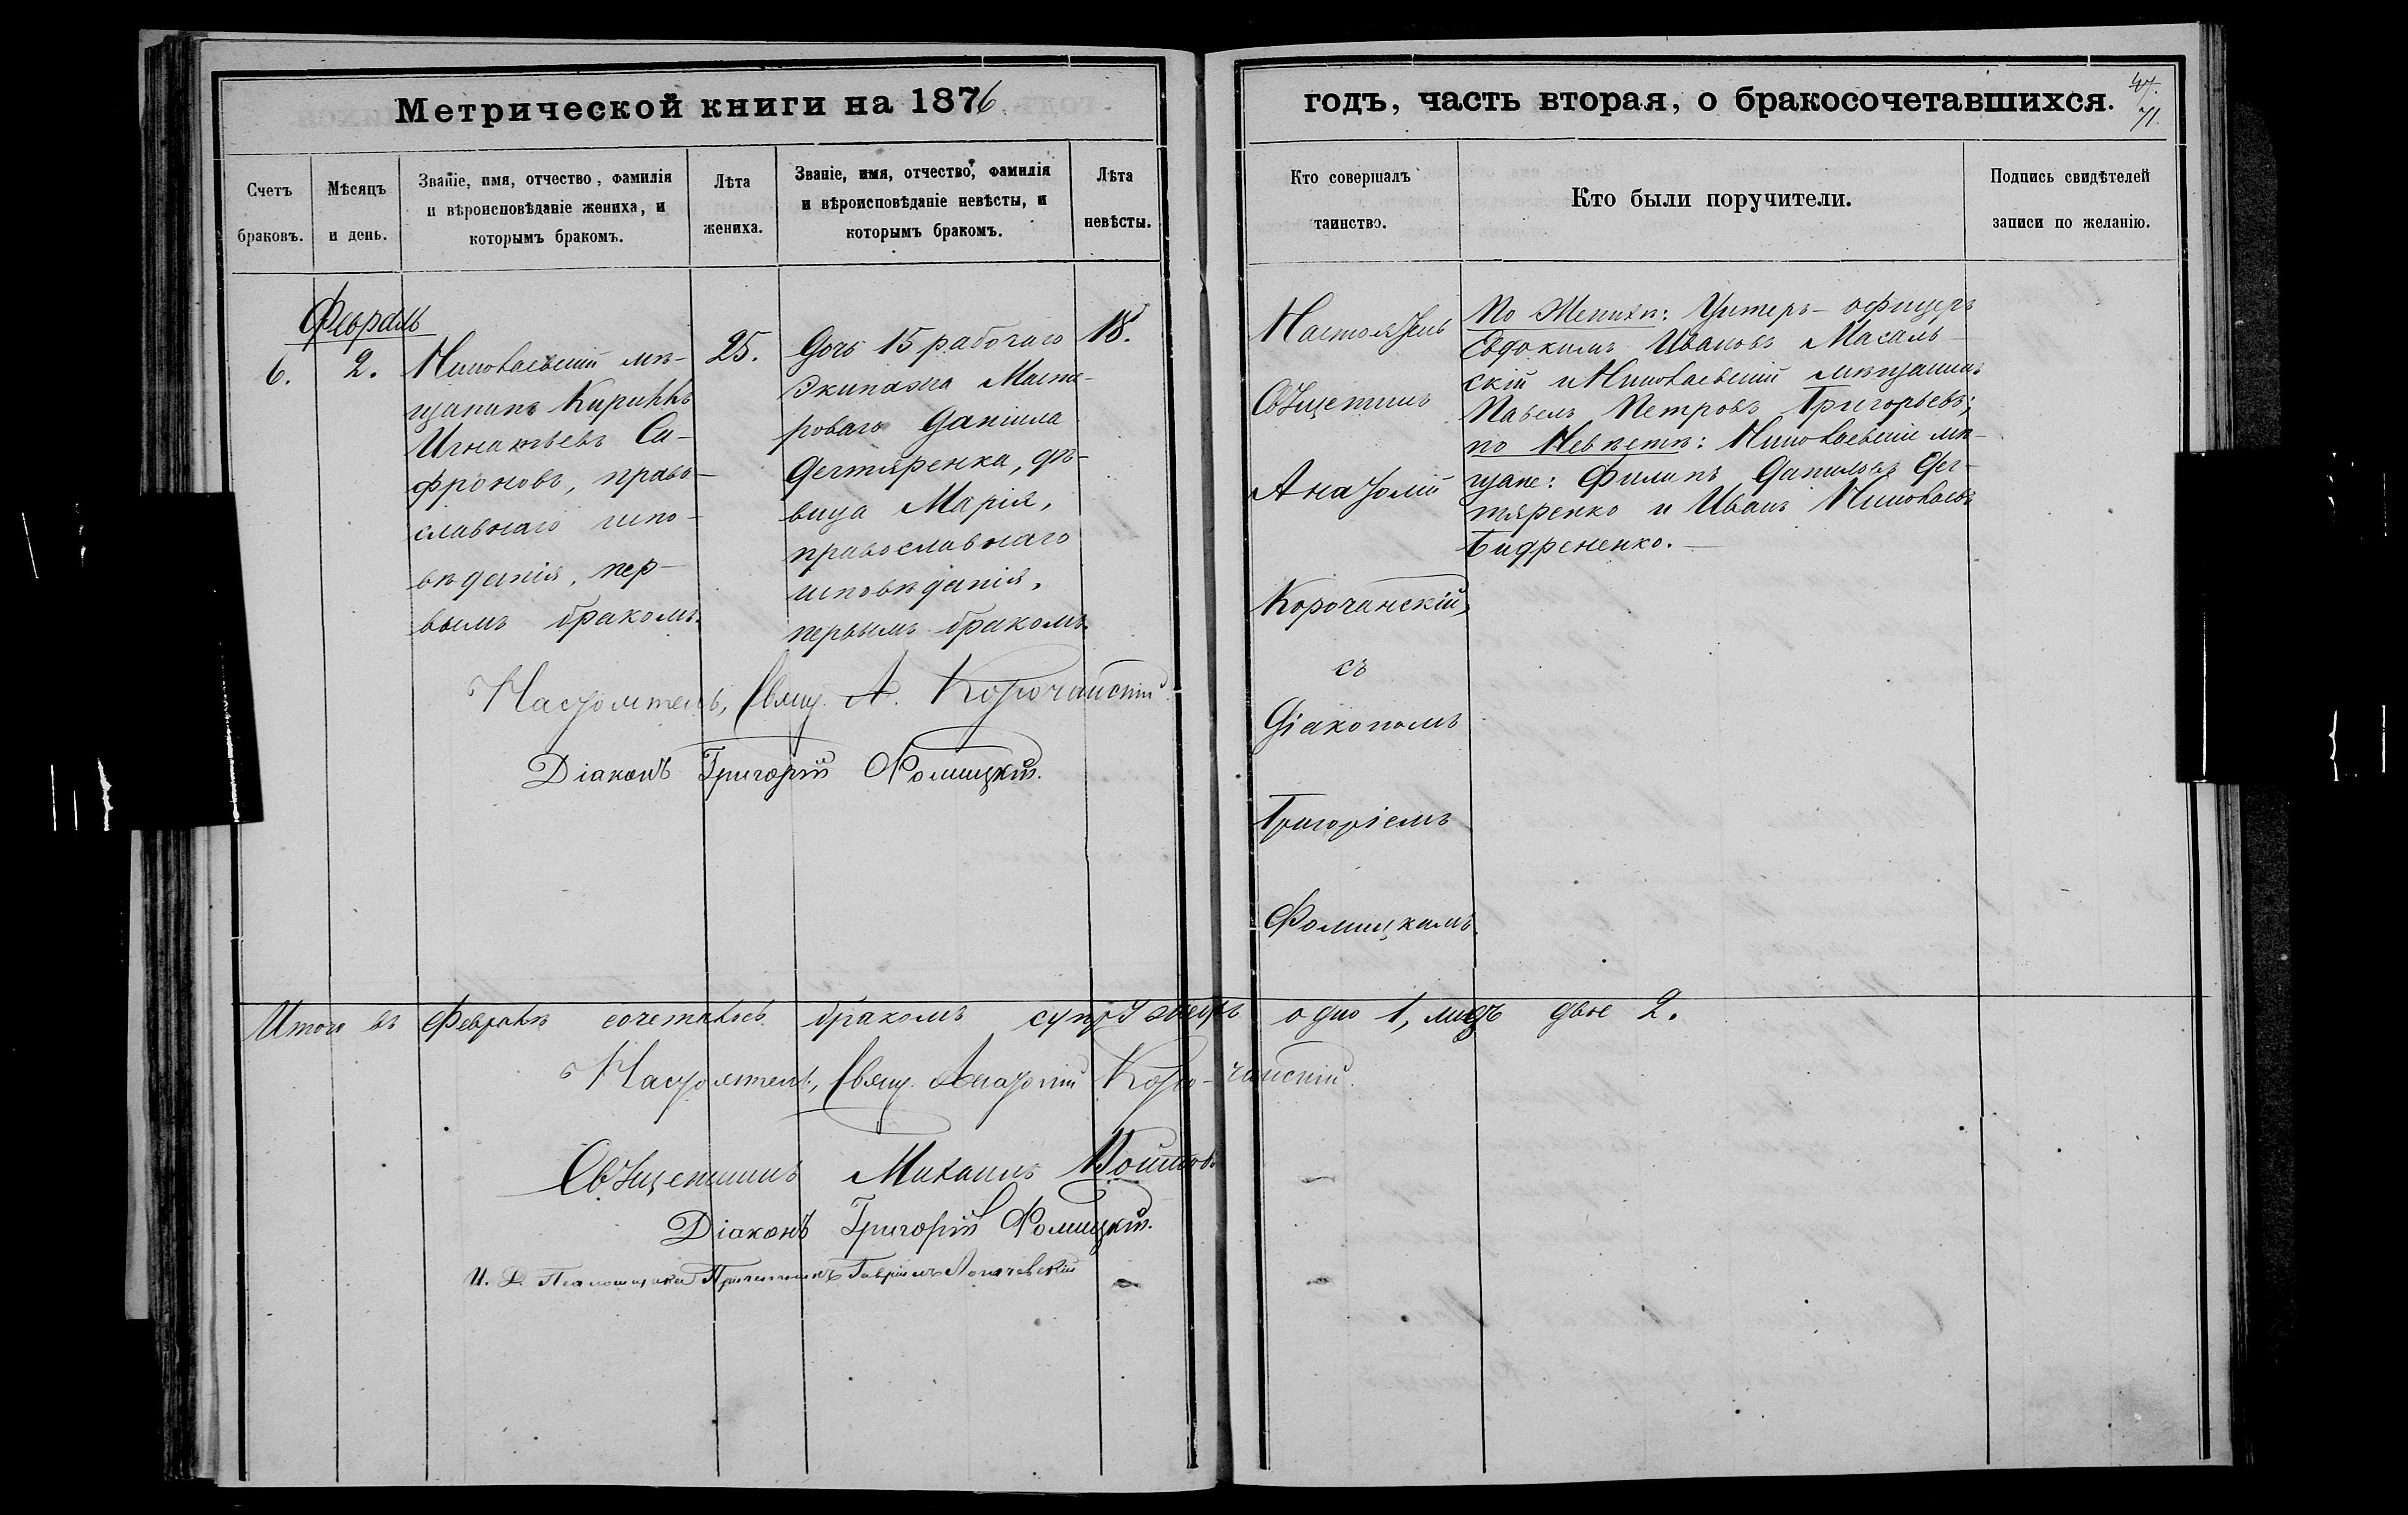 Метрической книги на 1876
годъ, часть вторая, о бракосочетавшихся.
47.
71.
Счетъ браковъ.
Мѣсяцъ и день.
Званіе, имя, отчество, фамилія
и вѣроисповѣданіе жениха, и
которымъ бракомъ.
Лѣта жениха.
Званіе, имя, отчество, фамилія
и вѣроисповѣданіе невѣсты, и
которымъ бракомъ.
Лѣта невѣсты.
Кто совершалъ таинство.
Кто были поручители.
Подпись свидѣтелей
записи по желанію.
Февраль
6.
2.
Николаевскій мѣ-
щанинъ Кириллъ
Игнатьевъ Са-
фроновъ, право-
славнаго испо-
вѣданія, пер-
вымъ бракомъ.
25.
Дочь 15 рабочаго
Экипажа Масте-
роваго Даніила
Дегтяренка, дѣ-
вица Марія,
православнаго
исповѣданія,
первымъ бракомъ.
18.
Настоятель
Священникъ
Анатолій
Корочанскій,
съ
Діакономъ
Григоріемъ
Фомицкимъ.
По Женихѣ: Унтеръ-офицеръ
Евдокимъ Ивановъ Масаль-
скій и Николаевскій мѣщанинъ
Павелъ Петровъ Григорьевъ;
по Невѣстѣ: Николаевскіе мѣ-
щане: Филипъ Даниловъ Дег-
тяренко и Иванъ Николаевъ
Настоятель, Свящ. А. Корочанскій
Діаконъ Григорій Фомицкій.
Итого въ Февралѣ сочеталось бракомъ супружествъ одно 1, лицъ двое 2.
Настоятель, Свящ. Анатолій Корочанскій.
Священникъ Михаилъ
Діаконъ Григорій Фомицкій.
И. Д. Псаломщика Причетникъ Гавріилъ